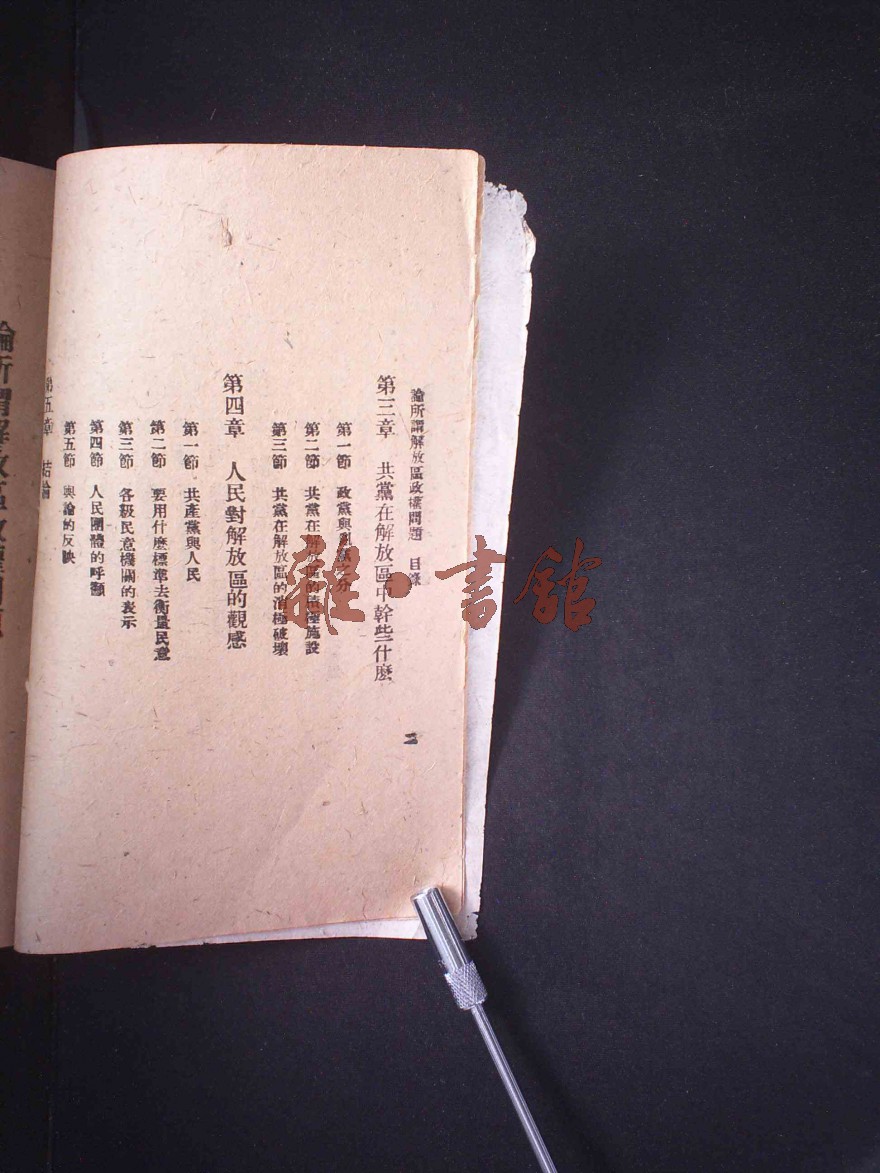 論所謂解放區政權問題 目錄
二
第三章 共黨在解放區中幹些什麽
第一節 政黨與亂黨之分
第二節 共黨在解放區的積極施設
第三節 共黨在解放區的消極破壞
第四章 人民對解放區的觀感
第一節 共產黨與人民
第二節 要用什麽標準去衡量民意
第三節 各級民意機關的表示
第四節 人民團體的呼籲
第五節 輿論的反映
第五章 結論
論所謂解放區政權問題
雜·書館